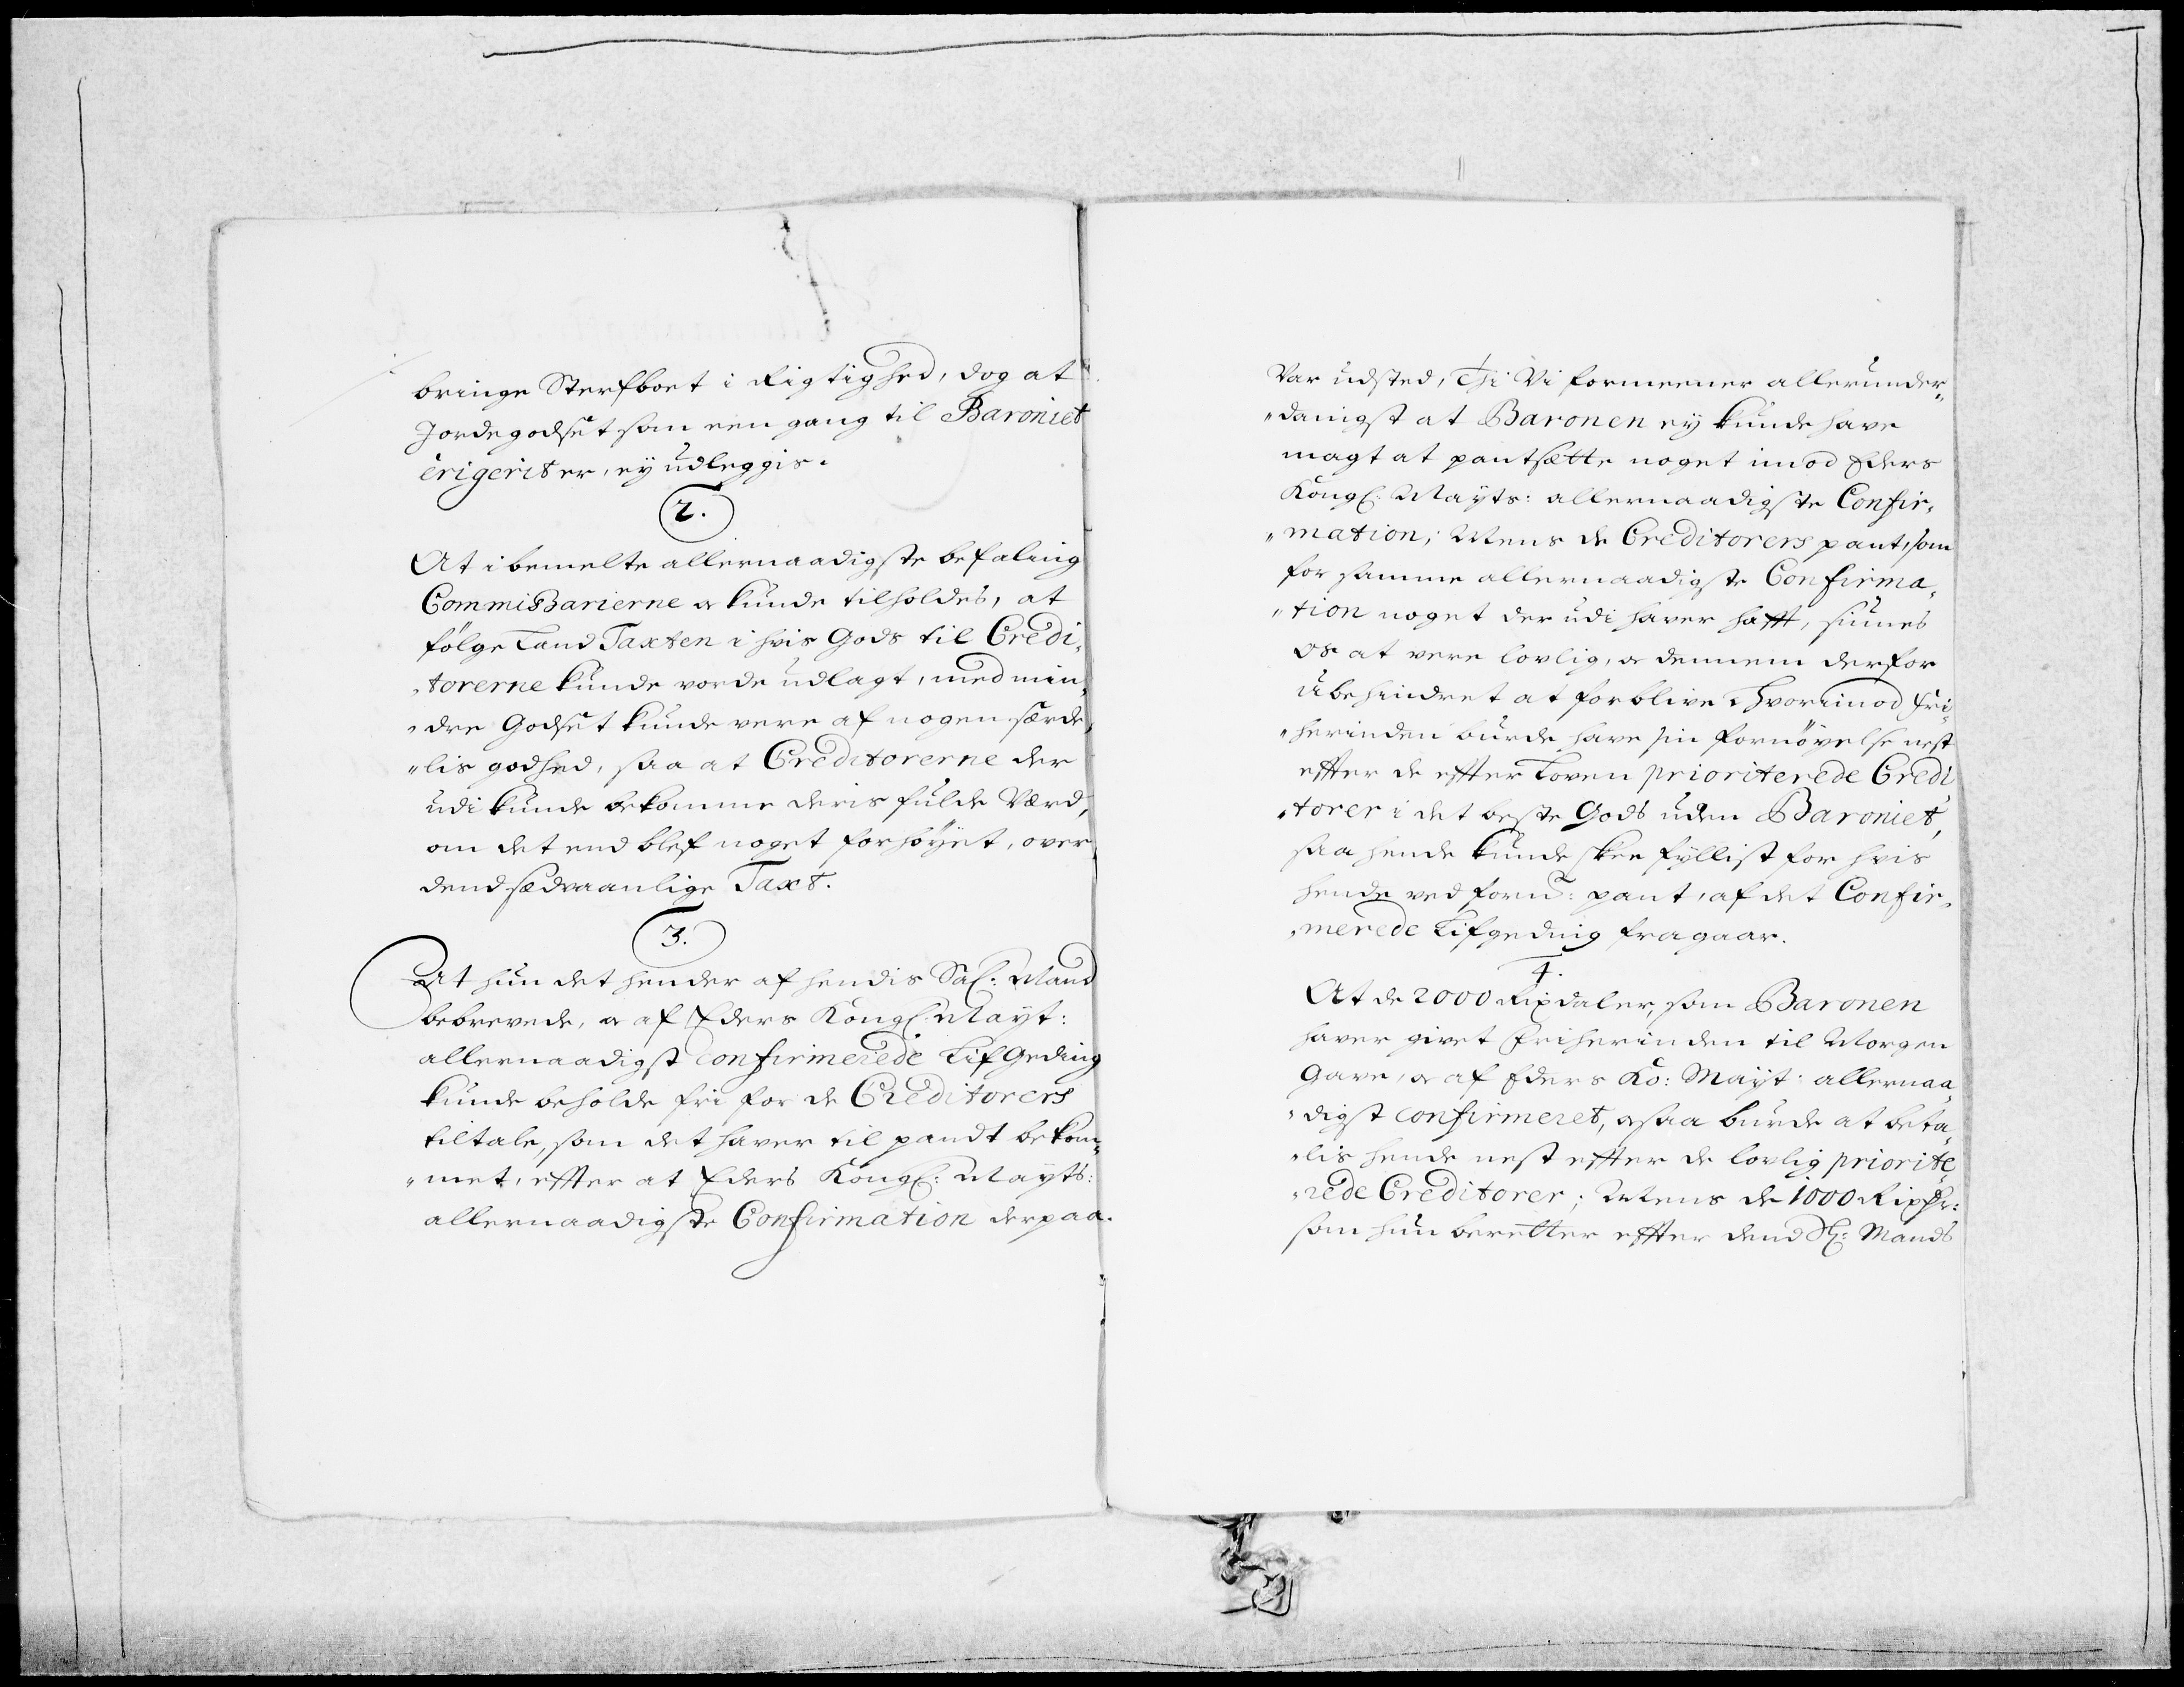 bringe Sterfboet i Rigtighed, dog at
Jordegodset som een gang til Baroniet
erigerit er, ey udleggis.
2.
At i bemelte allernaadigste befaling
Commissarierne og kunde tilholdes, at
følge Land Taxten i hvis Gods til Credi„
„torerne kunde vorde udlagt, med min„
„dre Godset kunde vere af nogen særde„
„lis godhed, saa at Creditorerne der
udi kunde bekomme deris fulde Værd,
om det end blef noget forhøyet, over
dend sædvaanlige Taxt.
3.
At hun det hender af hendis Sal: Mand
bebrevede, og af Eders Kongl: Mayt:
allernaadigst confirmerede Lif Geding
kunde beholde fri for de Creditorers
tiltale, som det haver til pandt bekom„
„met, effter at Eders Kongl: Mayts:
allernaadigste Confirmation derpaa.
Var udsted, Thi Vi formeener allerunder„
„danigst at Baronen ey kunde have
magt at pantsætte noget imod Eders
Kongl: Mayts: allernaadigste Confir„
„mation; Mens de Creditorers pant, som
for samme allernaadigste Confirma„
„tion noget der udi haver hafft, siunes
os at vere lovlig, og dennem derfor
ubehindret at forblive Hvorimod Fri„
„herinden burde have sin fornøyelse nest
effter de effter Loven prioriterede Credi
„torer i det beste Gods uden Baroniet,
saa hende kunde skee fyllist for hvis
hende ved forn: pant, af det Confir„
„merede Lifgeding fragaar.
4.
At de 2000 Rixdaler, som Baronen
haver givet Friherinden til Morgen
Gave, og af Eders Ko: Mayt: allernaa„
„digst confirmeret, og saa burde at beta„
„lis hende nest effter de lovlig priorite„
„rede Creditorer; Mens de 1000 Rixdr:
som hun beretter effter dend Sl: Mands